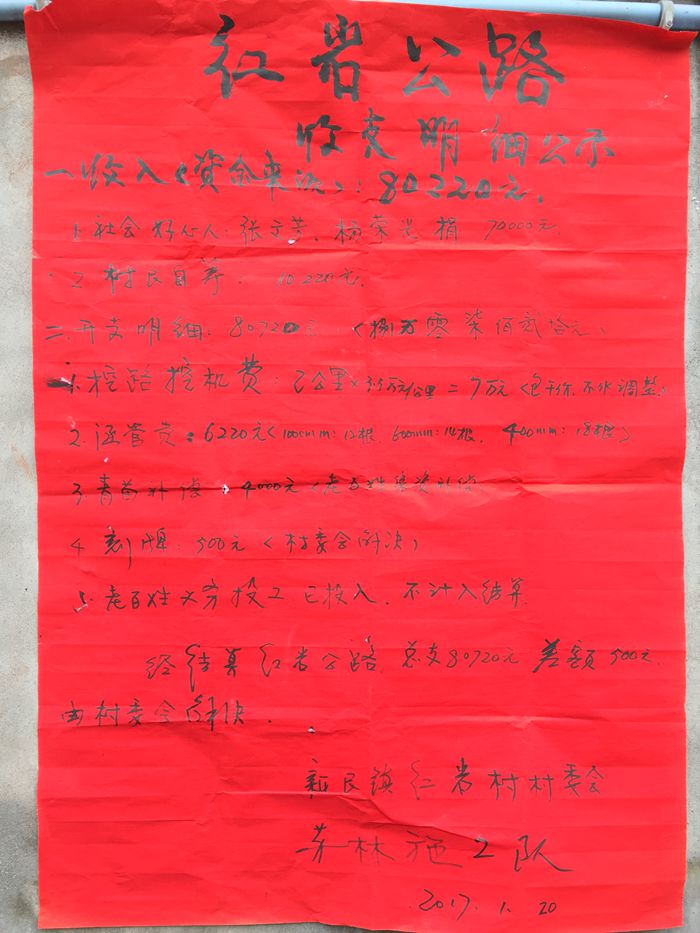 红岩公路
收支明细公示
一、收入(资金来源):80220元.
1.社会好心人:张子芳、杨荣光捐 70000元
2.村民自筹: 10220元.
二.开支明细:80720元(捌万零柒佰贰拾元)
1.挖路挖机费:2公里×3.5万元/公里=7万元(包干价,不作调整)
2.涵管费:6220元(100cmm:12根,600mm:14根,400mm:18根)
3.青苗补偿:4000元(老百姓 补偿
4.刻牌:500元(村委会解决)
5.老百姓义务投工已投入,不计入结算
经结算红岩公路,总支80720元 差额500元
由村委会解决.
新民镇红岩村村委会
林施工队
2017.1.20